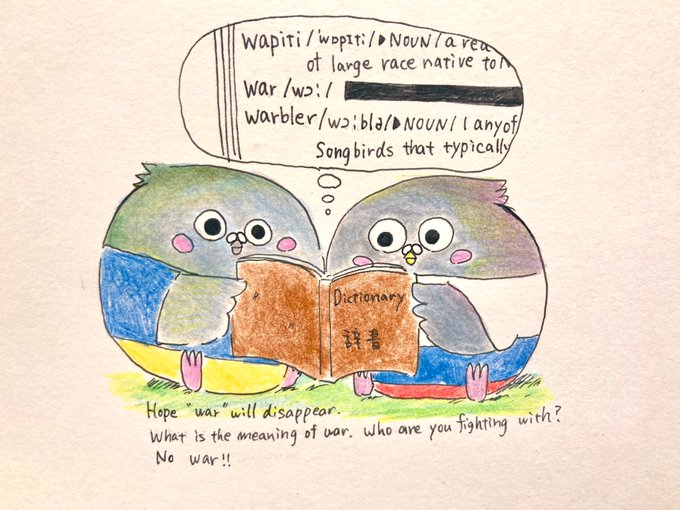 wapiti /'wɒpɪti/▶NOUN/a rea
of large race native to N
war /wɔː/
warbler/wɔːblə/▶NOUN/1 any of
Songbirds that typically
Dictionary
辞書
Hope "war" will disappear.
What is the meaning of war. Who are you fighting with?
No war!!